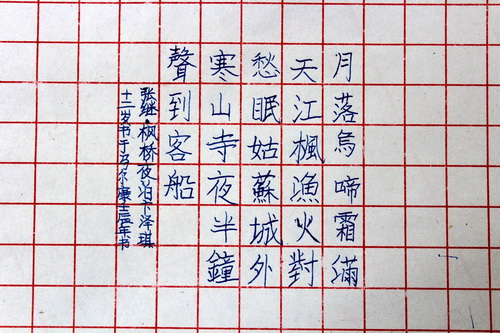 月落烏啼霜滿
天江楓漁火對
愁眠姑蘇城外
寒山寺夜半鐘
聲到客船
张继·枫桥夜泊卞泽琪
十二岁书于马尔康壬辰年书